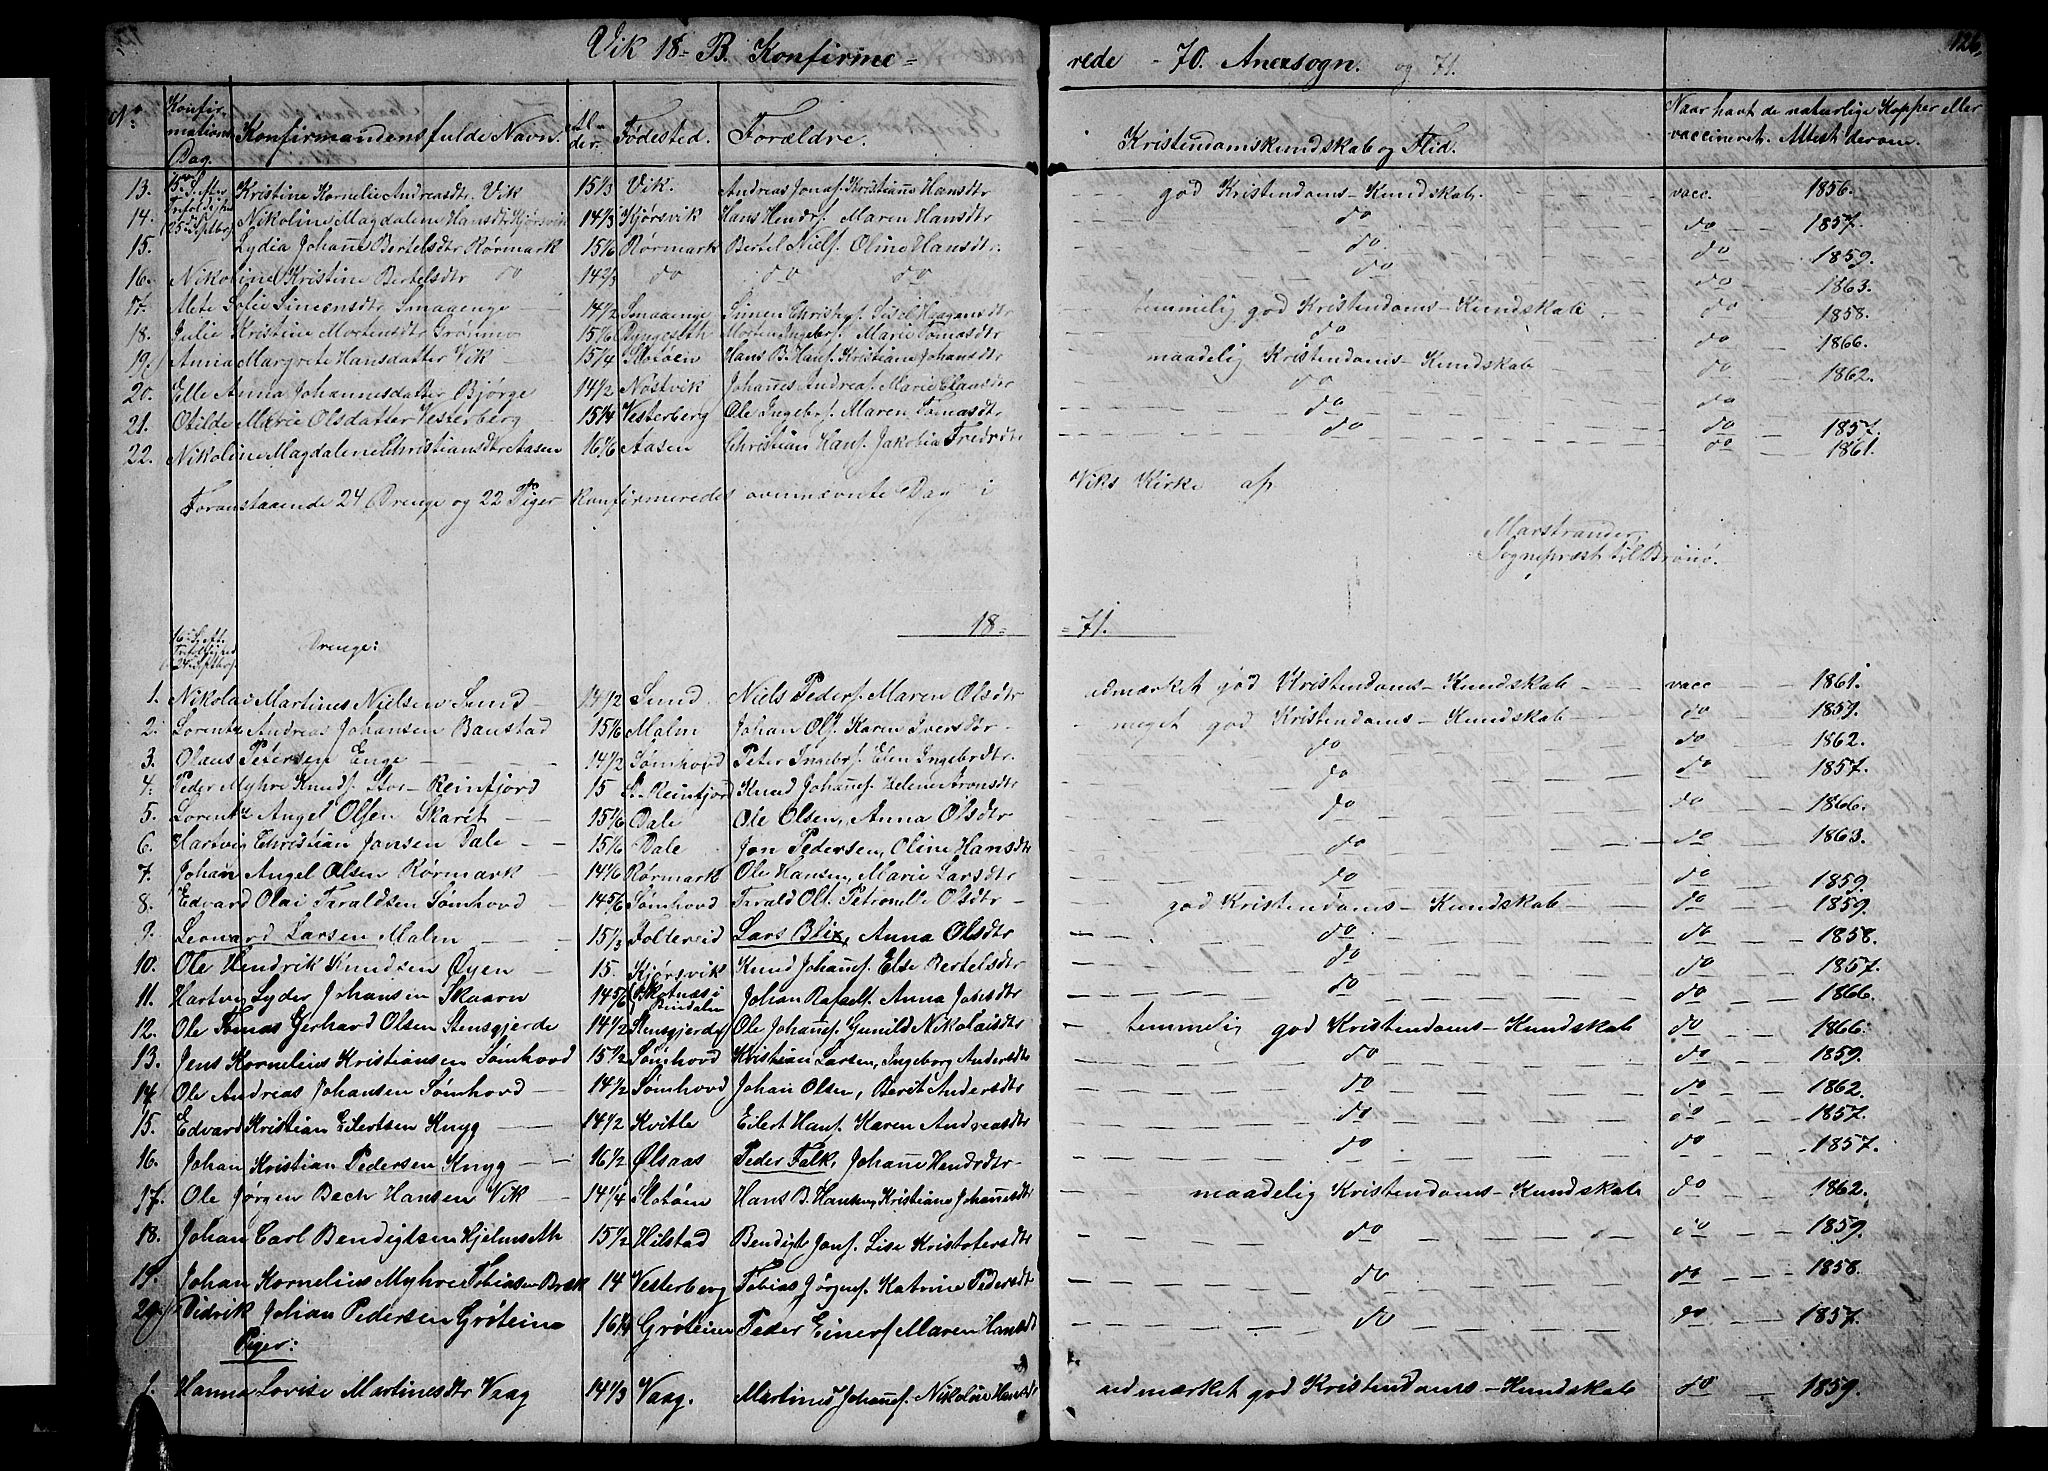 Vik 18= B. Konfirme= rede - 70. Anexsogn. og 71. 126.
No Konfirmations Dag. Konfirmandens fulde Navn. Alder. Fødested. Forældre. Kristendomskundskab og Flid. Naar havt de naturlige Kopper eller vaccineret. Attest derom.
13. Kristine Kornelie Andreasdtr Vik 15 1/3 Vik. Andreas Jonas. Kristianne Hansdtr god Kristendoms-Kundskab vacc. 1856.
14. 25 Septbr. Nikoline Magdalene Hansdtr Kjørsvik 14 1/3 Kjørsvik Hans Hendr. Maren Hansdtr do do 1857.
15. Lydia Johane Bertelsdtr Rørmark 15 1/6 Rørmark Bertel Niels. Oline Hansdtr. do do 1859.
16. Nikoline Kristine Bertelsdtr do 14 2/3 do do do do do 1863.
17. Mete Sofie Simensdtr Smaaenge 14 1/2 Smaaenge Simen Christ. Hansdtr temmelig god Kristendoms-Kundskab do 1858.
18. Julie Kristine Mortensdtr Grønmo 15 1/6 Morten Ingebr. Marie Tomasdtr do do 1866.
19. Anna Margrete Hansdatter Vik 15 1/4 Slotøen Hans B. Hans. Kristiane Johansdtr maadelig Kristendoms-Kundskab do 1862.
20. Elle Anna Johannesdatter Bjørge 14 1/2 Nøstvik Johannes Andreas. Marie Klausdtr do do
21. Otilde Marie Olsdatter Vesterberg 15 1/4 Vesterberg Ole Ingebr. Maren Tomasdtr do do 1857.
22. Nikoline Magdalene Christiansdtr Aasen 16 1/6 Aasen Christian Hans. Jakobia Fredrdtr do do 1861.
Foranstaaende 24 Drenge og 22 Piger Konfirmeredes ovennævnte Dag i Viks Kirke af
Marstrander,
Sogneprest til Brønø.
18= =71.
16 S. eft. Trefoldighed 24 Septbr. Drenge:
1. Nikolai Martines Nielsen Sund 14 1/2 Sund. Niels Peders. Maren Olsdtr udmærket god Kristendoms-Kundskab vacc 1861.
2. Lorentz Andreas Johansen Baustad 15 1/6 Malm Johan Ols. Karen Iversdtr meget god Kristendoms-Kundskab do 1859.
3. Olaus Petersen Enge 14 1/2 Sømhovd Peter Ingebr. Elen Ingebrdtr. do do 1862.
4. Peder Myhre Knuds. Stor-Reinfjord 15 St. Reinfjord Knud Johans. Helene Aronsdtr do do 1857.
5. Lorentz Angel Olsen Skaret 15 1/6 Dale Ole Olsen, Anna Olsdtr do do 1866.
6. Hartvig Christian Jonsen Dale 15 1/6 Dale Jon Pedersen, Oline Hansdtr do do 1863.
7. Johan Angel Olsen Rørmark 14 1/6 Rørmark Ole Hansen, Marie Larsdtr do do 1859.
8. Edvard Olai Taraldsen Sømhovd 14 5/6 Sømhovd Tarald Ols. Petronelle Olsdtr god Kristendoms-Kundskab do 1859.
9. Leonard Larsen Malm 15 1/3 Toltereid Lars Blix, Anna Olsdtr do do 1858.
10. Ole Hendrik Knudsen Øyen 15. Kjørsvik Knud Johans. Else Bertelsdtr do do 1857.
11. Hartvig Lyder Johansen Skaarn 14 5/6 Skotnæs i Bindalen Johan Rafaels. Anna Jonsdtr do do 1866.
12. Ole Tomas Gerhard Olsen Stensgjerde 14 1/2 Stensgjerde Ole Johans. Gunild Nikolaisdtr temmelig god Kristendoms-Kundskab do 1866.
13. Jens Kornelius Kristiansen Sømhovd 15 1/2 Sømhovd Kristian Larsen, Ingeborg Andersdtr do do 1859.
14 Ole Andreas Johansen Sømhovd 14 1/2 Sømhovd Johan Olsen, Berit Andersdtr do do 1862
15. Edvard Kristian Eilertsen Knyg 14 1/2 Kvitle Eilert Hans. Karen Andreasdtr do do 1857.
16. Johan Kristian Pedersen Knyg 16 1/2 Ølsaas Peder Falk, Johanne Hendrdtr do do 1857.
17. Ole Jørgen Bech Hansen Vik 14 1/4 Slotøen Hans B. Hansen, Kristiane Johansdtr maadelig Kristendoms-Kundskab do 1862.
18. Johan Carl Bendigtsen Hjelmseth 15 1/2 Hilstad Bendigt Jons. Lise Kristofersdtr do do 1859.
19. Johan Kornelius Myhre Tobiassen Bræk 14 Vesterberg Tobias Jørgens. Katrine Pedersdtr do do 1858.
20. Didrik Johan Pedersen Grøteine 16 1/4 Grøteien Peder Einers. Maren Hansdtr do do 1857.
Piger:
1. Hanna Lovise Martinesdtr Vaag 14 1/3 Vaag. Martines Johans. Nikoline Hansdtr udmærket god Kristendoms-Kundskab do 1859.